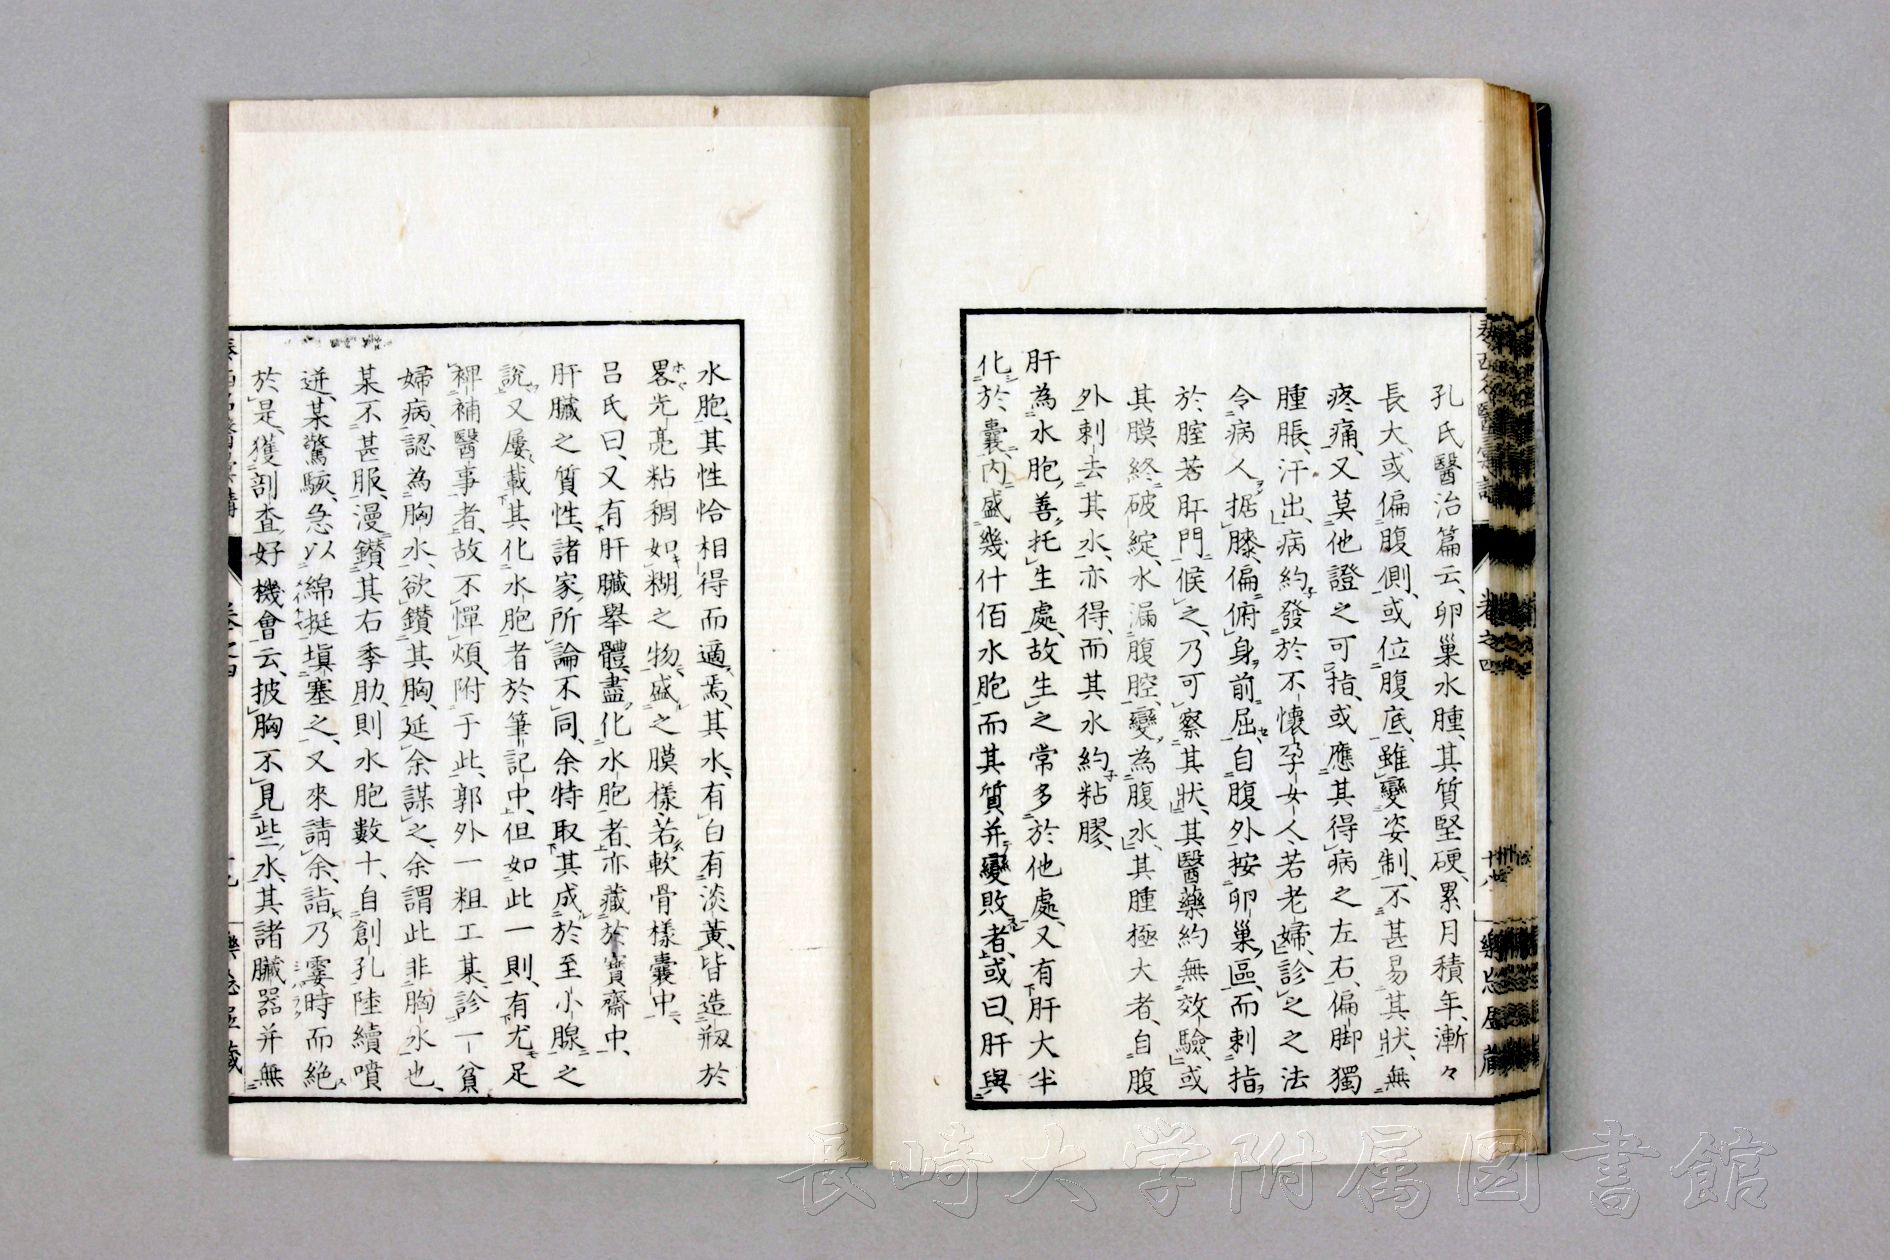 孔氏醫治篇云、卵巢水腫、其質堅硬、累月積年、漸々
長大、或偏腹側、或位腹底、雖變姿制、不甚易其狀、無
疼痛、又莫他證之可指、或應其得病之左右、偏脚獨
腫脹、汗出、病約發於不懷孕女人、若老婦、診之之法
令病人据膝、偏俯身前屈、自腹外按卵巢區、而刺指
於腟若肛門候之、乃可察其狀、其醫藥約無效驗、或
其膜終破綻、水漏腹腔、變為腹水、其腫極大者、自腹
外刺去其水、亦得、而其水約粘膠、
肝為水胞、善托生處、故生之常多於他處、又有肝大半
化於嚢内盛幾什佰水胞而其質并變敗者、或曰、肝與
水胞、其性恰相得而適焉、其水、有白有淡黃、皆造釀於
畧光亮粘稠如糊之物盛之膜樣、若軟骨樣嚢中、
呂氏曰、又有肝臟舉體盡化水胞者、亦藏於寶齋中、
肝臟之質性、諸家所論不同、余特取其成於至小腺之
說、又屢載其化水胞者於筆記中、但如此一則、有尤足
裨補醫事者、故不憚煩、附于此、郭外一粗工某、診一貧
婦病、認為胸水、欲鑚其胸、延余謀之、余謂此非胸水也、
某不甚服、漫鑚其右季肋、則水胞數十、自創孔陸續噴
迸、某驚駭、急以綿挺塡塞之、又來請余、詣乃霎時而絶
於是、獲剖査好機會云、披胸不見些水、其諸臟器并無
卷之四
樂忘居藏
長崎大学附属図書館